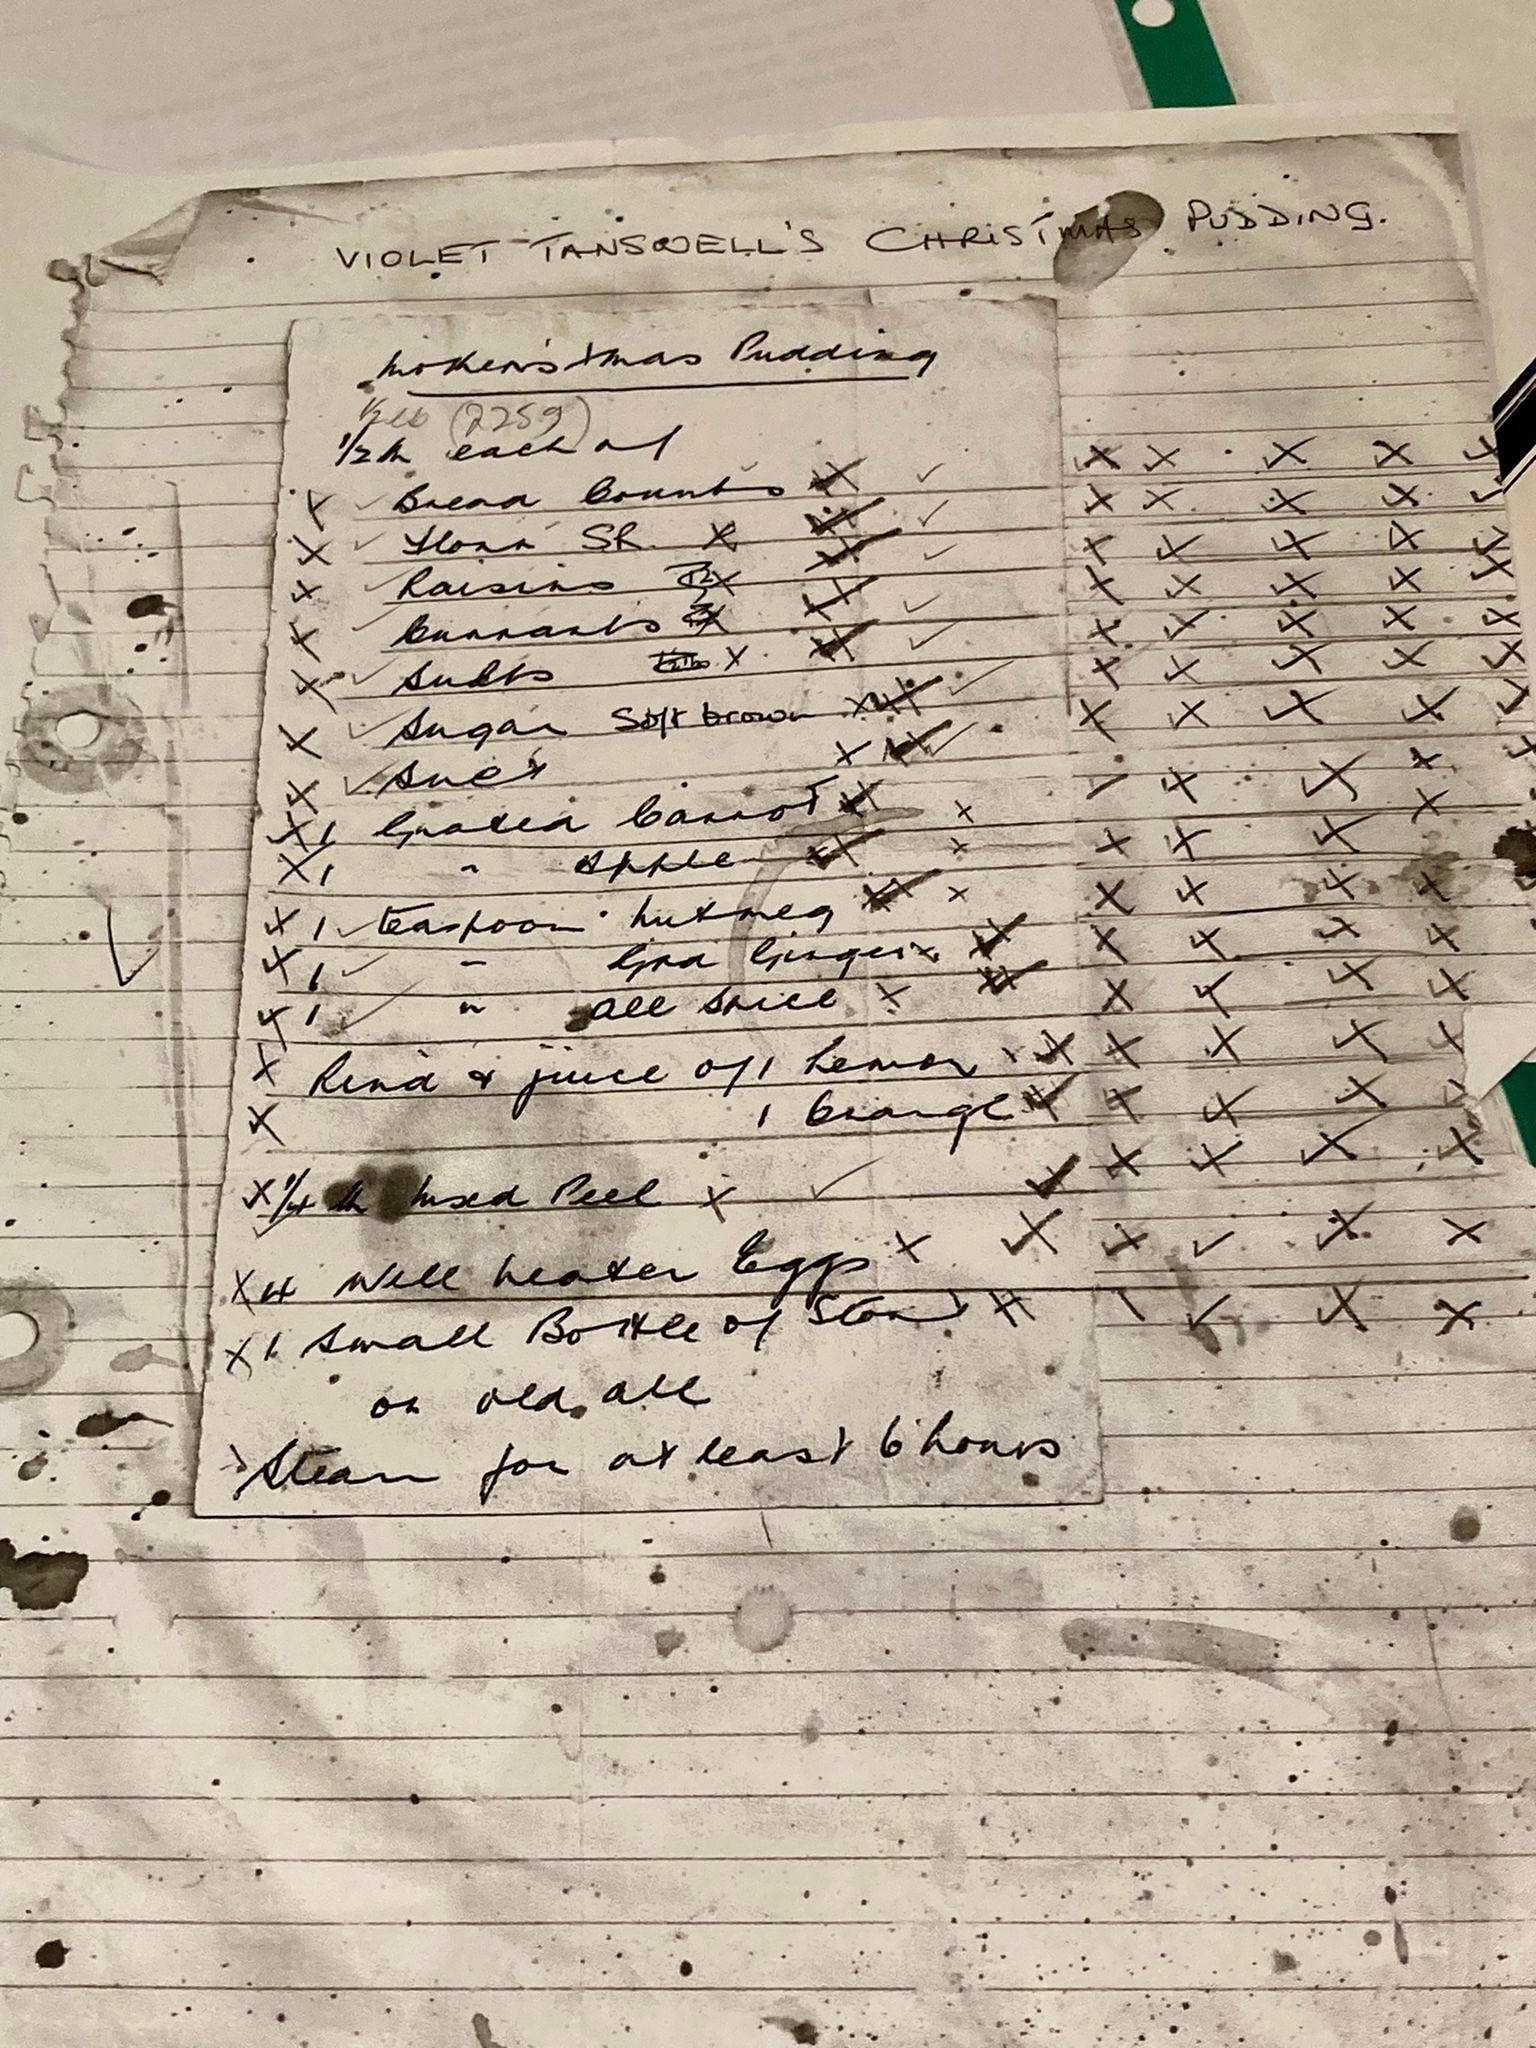 VIOLET TANSWELL'S CHRISTMAS PUDDING.
Mother's Xmas Pudding
1/2 lb (225g)
1/2 lb each of
Bread Crumbs
Flour SR.
Raisins
Currants
Sults
Sugar Soft brown
Suet
1 Grated Carrot
1 " Apple
1 teaspoon nutmeg
1 " Grd Ginger
1 " All Spice
Rind & juice of 1 Lemon
1 Orange
1/4 lb Mixed Peel
4 Well beaten Eggs
1 Small Bottle of Stout
or old ale
Steam for at least 6 hours